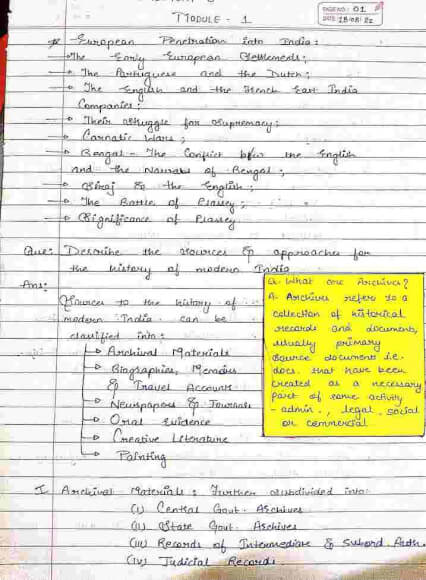 MODULE - 1
PAGE NO: 01
DATE: 18/08/22
* European Penetration into India:
→ The Early European Settlements;
→ The Portuguese and the Dutch;
→ The English and the French East India
Companies;
→ Their struggle for supremacy;
→ Carnatic Wars;
→ Bengal - The Conflict b/w the English
and the Nawabs of Bengal;
→ Siraj & the English;
→ The Battle of Plassey;
→ Significance of Plassey.
Que: Describe the sources & approaches for
the history of modern India
Ans:
Sources to the history of
modern India can be
classified into:
→ Archival Materials
→ Biographies, Memoirs
& Travel Accounts
→ Newspapers & Journals
→ Oral Evidence
→ Creative Literature
→ Painting
Q. What are Archives?
A. Archives refer to a
collection of historical
records and documents,
usually primary
source documents i.e.
docs. that have been
created as a necessary
part of some activity
- admin., legal, social
or commercial
I. Archival Materials: Further subdivided into:
(i) Central Govt. Archives
(ii) State Govt. Archives
(iii) Records of Intermediate & Subord. Auth.
(iv) Judicial Records.